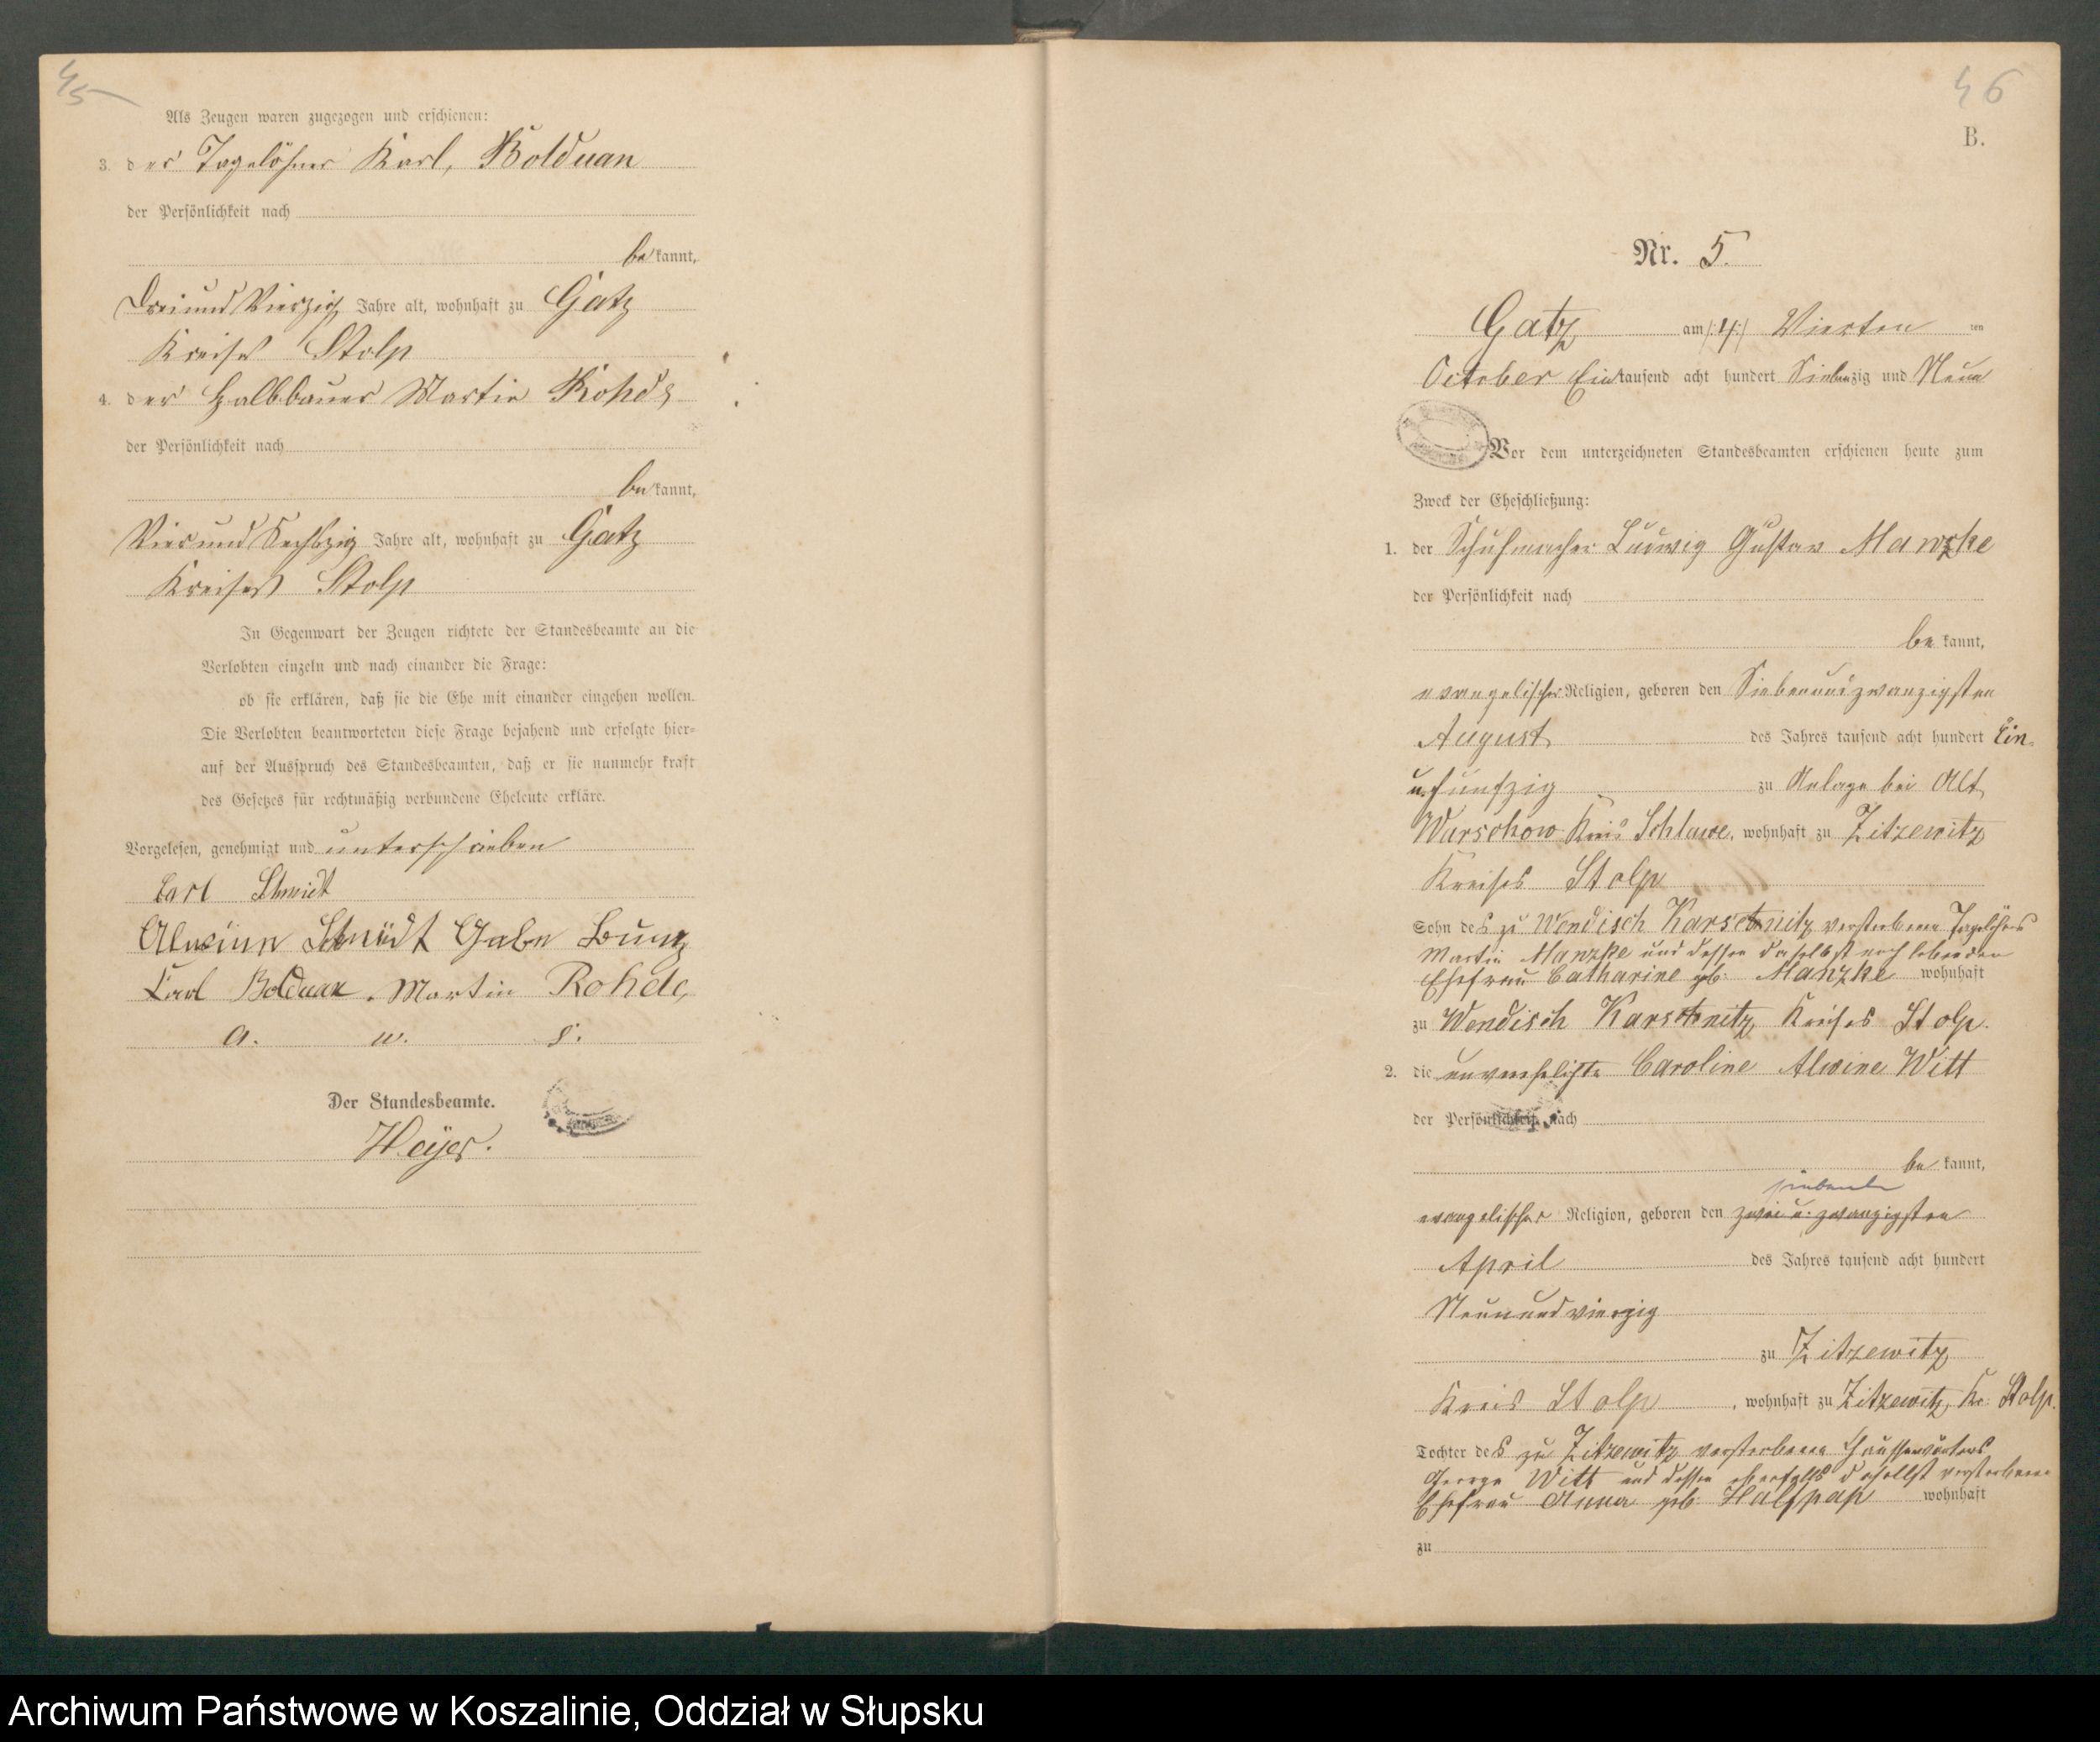 45
Als Zeugen waren zugezogen und erschienen:
3. der Tagelöhner Karl, Bolduan
der Persönlichkeit nach
bekannt,
Dreiund Vierzig Jahre alt, wohnhaft zu Gatz
Kreises Stolp
4. der Halbbauer Martin Rohde
der Persönlichkeit nach
bekannt,
Vierund Sechszig Jahre alt, wohnhaft zu Gatz
Kreises Stolp
In Gegenwart der Zeugen richtete der Standesbeamte an die
Verlobten einzeln und nach einander die Frage:
ob sie erklären, daß sie die Ehe mit einander eingehen wollen.
Die Verlobten beantworteten diese Frage bejahend und erfolgte hier-
auf der Ausspruch des Standesbeamten, daß er sie nunmehr kraft
des Gesetzes für rechtmäßig verbundene Eheleute erkläre.
Vorgelesen, genehmigt und unterschrieben
Carl Schmidt
Alwiene Schmidt Gabe
Karl Bolduan. Martin Rohde,
a. u. s.
Der Standesbeamte.
Heyer.
46
B.
Nr. 5.
Gatz am /:4:/ Vierten ten
October Eintausend acht hundert Siebenzig und Neun
Vor dem unterzeichneten Standesbeamten erschienen heute zum
Zweck der Eheschließung:
1. der Schuhmacher Ludwig Gustav Manzke
der Persönlichkeit nach
bekannt,
evangelischer Religion, geboren den Siebenundzwanzigsten
August des Jahres tausend acht hundert Ein-
u. fünfzig zu Anlage bei Alt
Warschow Kreis Schlawe, wohnhaft zu Zitzewitz
Kreises Stolp
Sohn des zu Wendisch Karstnitz verstorbenen Tagelöhners
Martin Manzke und dessen daselbst noch lebenden
Ehefrau Catharine geb. Manzke wohnhaft
zu Wendisch Karstnitz, Kreises Stolp.
2. die unverehelichte Caroline Alwine Witt
der Persönlichkeit nach
bekannt,
siebente
evangelischer Religion, geboren den zwei u. zwanzigsten
April des Jahres tausend acht hundert
Neunundvierzig
zu Zitzewitz
Kreis Stolp, wohnhaft zu Zitzewitz, Kr. Stolp.
Tochter des zu Zitzewitz verstorbenen
George Witt und dessen ebenfalls daselbst verstorbenen
Ehefrau Anna geb. wohnhaft
zu
Archiwum Państwowe w Koszalinie, Oddział w Słupsku